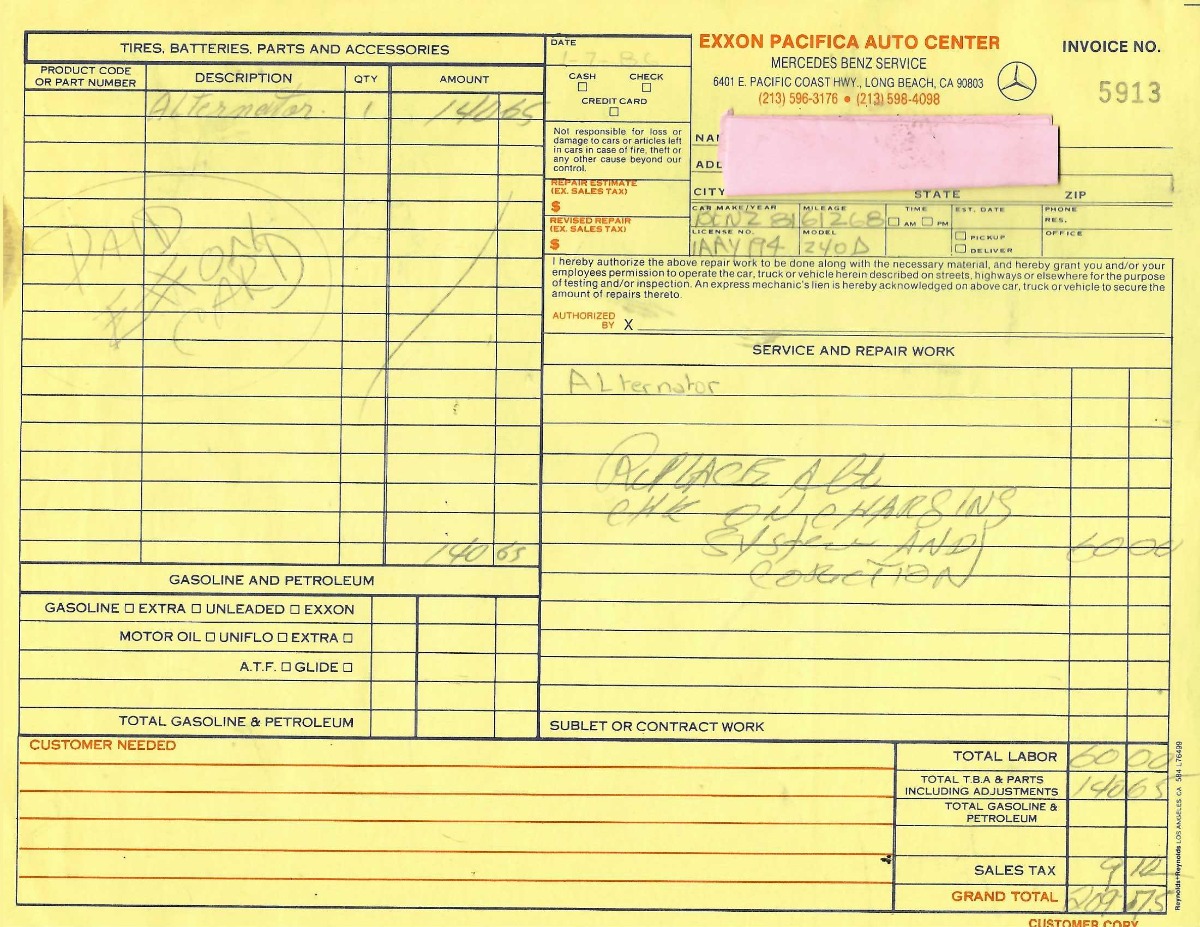 TIRES, BATTERIES, PARTS AND ACCESSORIES
PRODUCT CODE OR PART NUMBER DESCRIPTION QTY AMOUNT
Alternator 1 140 65
PAID
EXXON
CARD
140 65
GASOLINE AND PETROLEUM
GASOLINE ☐ EXTRA ☐ UNLEADED ☐ EXXON
MOTOR OIL ☐ UNIFLO ☐ EXTRA ☐
A.T.F. ☐ GLIDE ☐
TOTAL GASOLINE & PETROLEUM
DATE
CASH ☐ CHECK ☐
CREDIT CARD ☐
Not responsible for loss or
damage to cars or articles left
in cars in case of fire, theft or
any other cause beyond our
control.
REPAIR ESTIMATE
(EX. SALES TAX)
$
REVISED REPAIR
(EX. SALES TAX)
$
EXXON PACIFICA AUTO CENTER
MERCEDES BENZ SERVICE
6401 E. PACIFIC COAST HWY., LONG BEACH, CA 90803
(213) 596-3176 • (213) 598-4098
INVOICE NO.
5913
CITY STATE ZIP
CAR MAKE/YEAR MILEAGE TIME EST. DATE PHONE
BENZ 81 61268 ☐ AM ☐ PM RES.
LICENSE NO. MODEL ☐ PICKUP OFFICE
240D ☐ DELIVER
I hereby authorize the above repair work to be done along with the necessary material, and hereby grant you and/or your
employees permission to operate the car, truck or vehicle herein described on streets, highways or elsewhere for the purpose
of testing and/or inspection. An express mechanic's lien is hereby acknowledged on above car, truck or vehicle to secure the
amount of repairs thereto.
AUTHORIZED
BY X
SERVICE AND REPAIR WORK
ALternator
REPLACE Alt
CHK ON CHARSING
System AND 60 00
SUBLET OR CONTRACT WORK
CUSTOMER NEEDED
TOTAL LABOR 60 00
TOTAL T.B.A & PARTS
INCLUDING ADJUSTMENTS 140 65
TOTAL GASOLINE &
PETROLEUM
SALES TAX 9 10
GRAND TOTAL 209 75
CUSTOMER COPY
Reynolds+Reynolds LOS ANGELES, CA 584 L76499